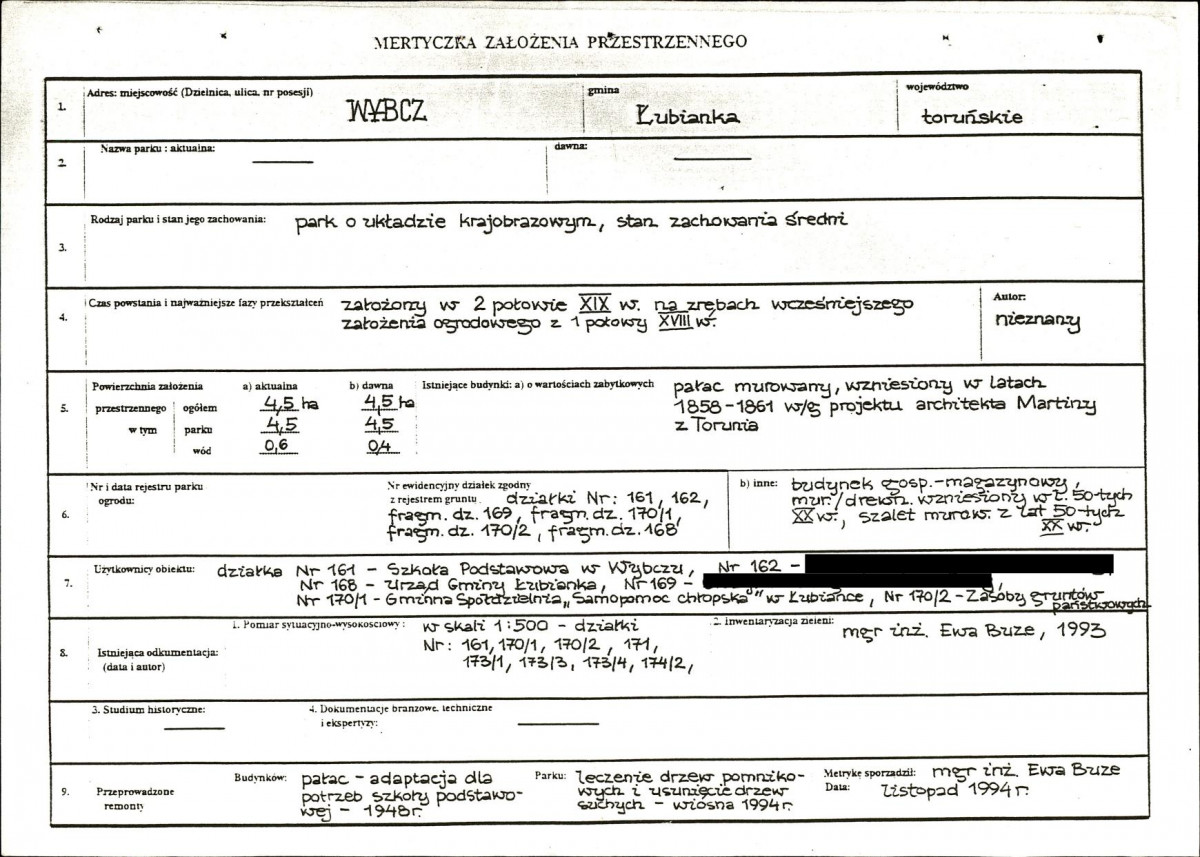 MERTYCZKA ZAŁOŻENIA PRZESTRZENNEGO
1. Adres: miejscowość (Dzielnica, ulica, nr posesji) WYBCZ gmina Łubianka województwo toruńskie
2. Nazwa parku : aktualna: — dawna: —
3. Rodzaj parku i stan jego zachowania: park o układzie krajobrazowym, stan zachowania średni
4. Czas powstania i najważniejsze fazy przekształceń założony w 2 połowie XIX w. na zrębach wcześniejszego
założenia ogrodowego z 1 połowy XVIII w.
Autor:
nieznany
5. Powierzchnia założenia a) aktualna b) dawna
przestrzennego ogółem 4,5 ha 4,5 ha
w tym parku 4,5 4,5
wód 0,6 0,4
Istniejące budynki: a) o wartościach zabytkowych pałac murowany, wzniesiony w latach
1858-1861 w/g projektu architekta Martiny
z Torunia
6. Nr i data rejestru parku
ogrodu:
Nr ewidencyjny działek zgodny
z rejestrem gruntu działki Nr: 161, 162,
fragm. dz. 169, fragm. dz. 170/1,
fragm. dz. 170/2, fragm. dz. 168
b) inne: budynek gosp.-magazynowy,
mur./drewn. wzniesiony w l. 50-tych
XX w., szalet murow. z lat 50-tych
XX w.
7. Użytkownicy obiektu: działka Nr 161 - Szkoła Podstawowa w Wybczu, Nr 162 -
Nr 168 - Urząd Gminy Łubianka, Nr 169 - ,
Nr 170/1 - Gminna Spółdzielnia „Samopomoc chłopska" w Łubiance, Nr 170/2 - Zasoby gruntów
państwowych
8. Istniejąca odkumentacja:
(data i autor)
1. Pomiar sytuacyjno-wysokościowy: w skali 1:500 - działki
Nr: 161, 170/1, 170/2, 171,
173/1, 173/3, 173/4, 174/2,
2. Inwentaryzacja zieleni: mgr inż. Ewa Buze, 1993
3. Studium historyczne: —
4. Dokumentacje branżowe, techniczne
i ekspertyzy: —
9. Przeprowadzone
remonty
Budynków: pałac - adaptacja dla
potrzeb szkoły podstawo-
wej - 1948r.
Parku: leczenie drzew pomniko-
wych i usunięcie drzew
suchych - wiosna 1994r.
Metrykę sporządził: mgr inż. Ewa Buze
Data: listopad 1994r.